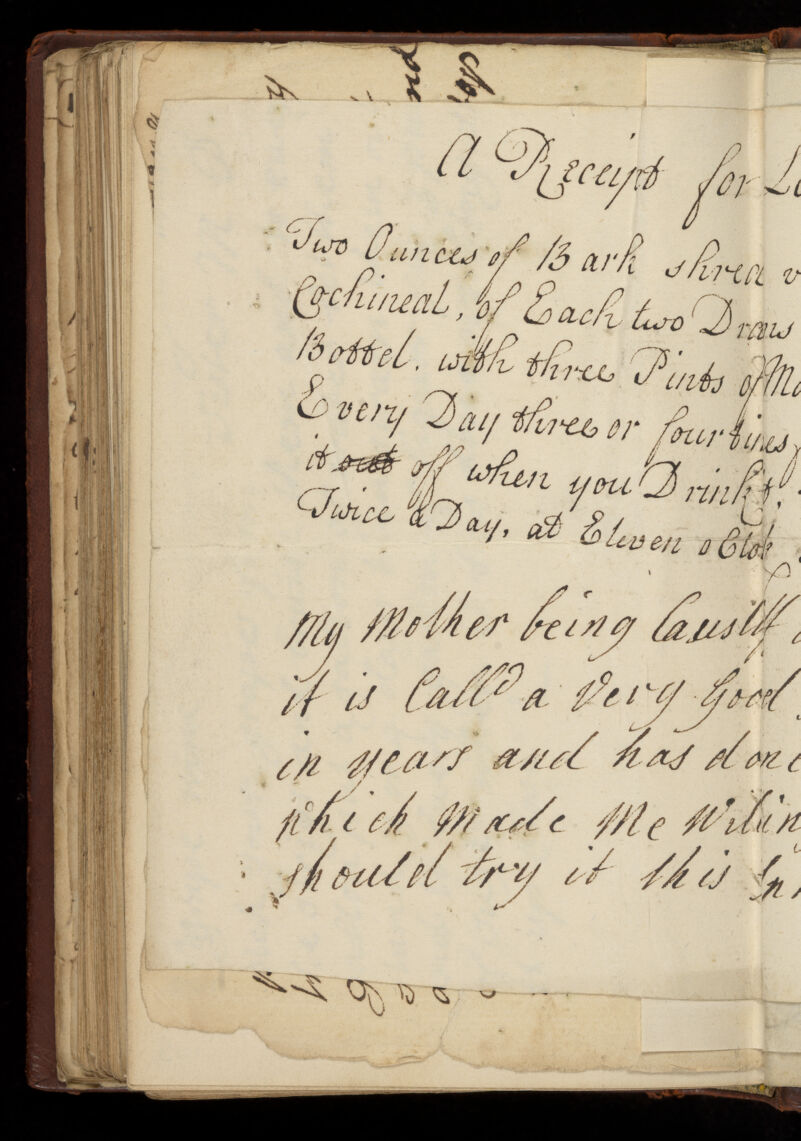 A Receipt for
Two Ounces of Bark shred
Cochineal, of Each two Drams
Bottel. with three Pints of
Every Day three or four times
it out off when you Drink it.
Twice a Day, at Eleven o Clok
My Mother being
it is Call'd a Very Good
in years and has done
which Made Me Wilin
should try it this